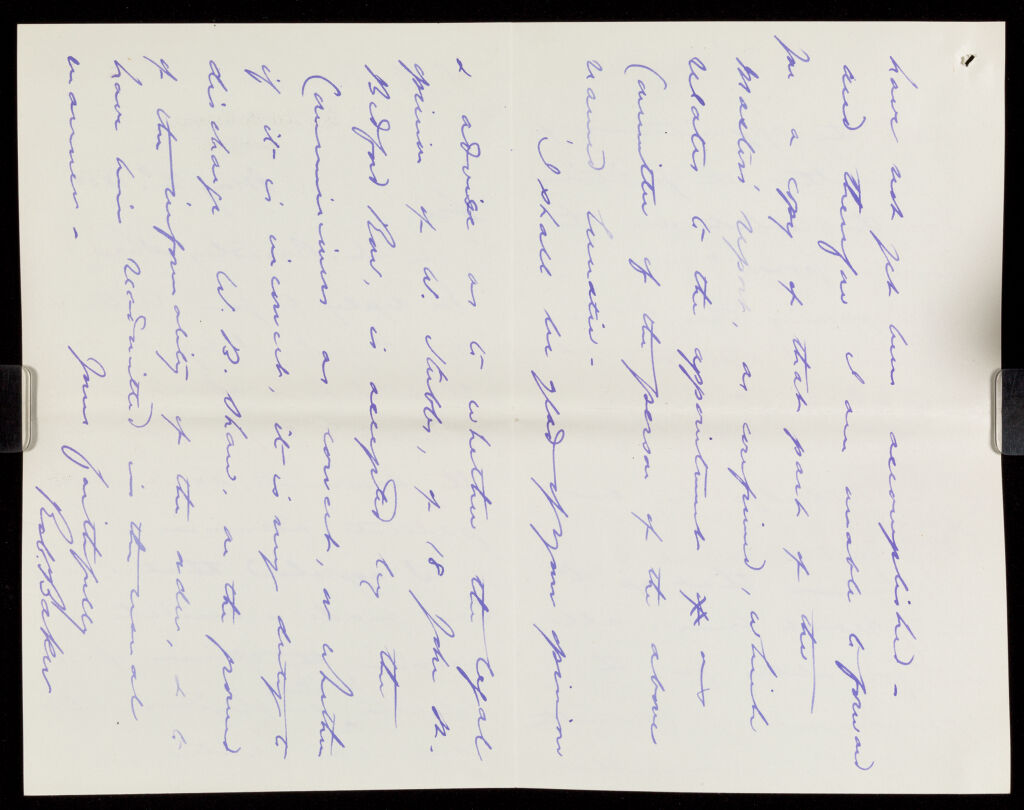 have not yet been accomplished -
and therefore I am unable to forward
you a copy of that part of the
Master's report, as confirmed, which
relates to the appointment as
Committee of the person of the above
named Lunatic -
I shall be glad of your opinion
& advise as to whether the legal
opinion of W. Stubbs, of 18 John St.
Bedford Row, is accepted by the
Commissioners as correct, or whether
if it is incorrect, it is my duty to
discharge W. B. Shaw, on the ground
of the informality of the order, & to
have him readmitted in the usual
manner -
Yours faithfully
Rob. Baker